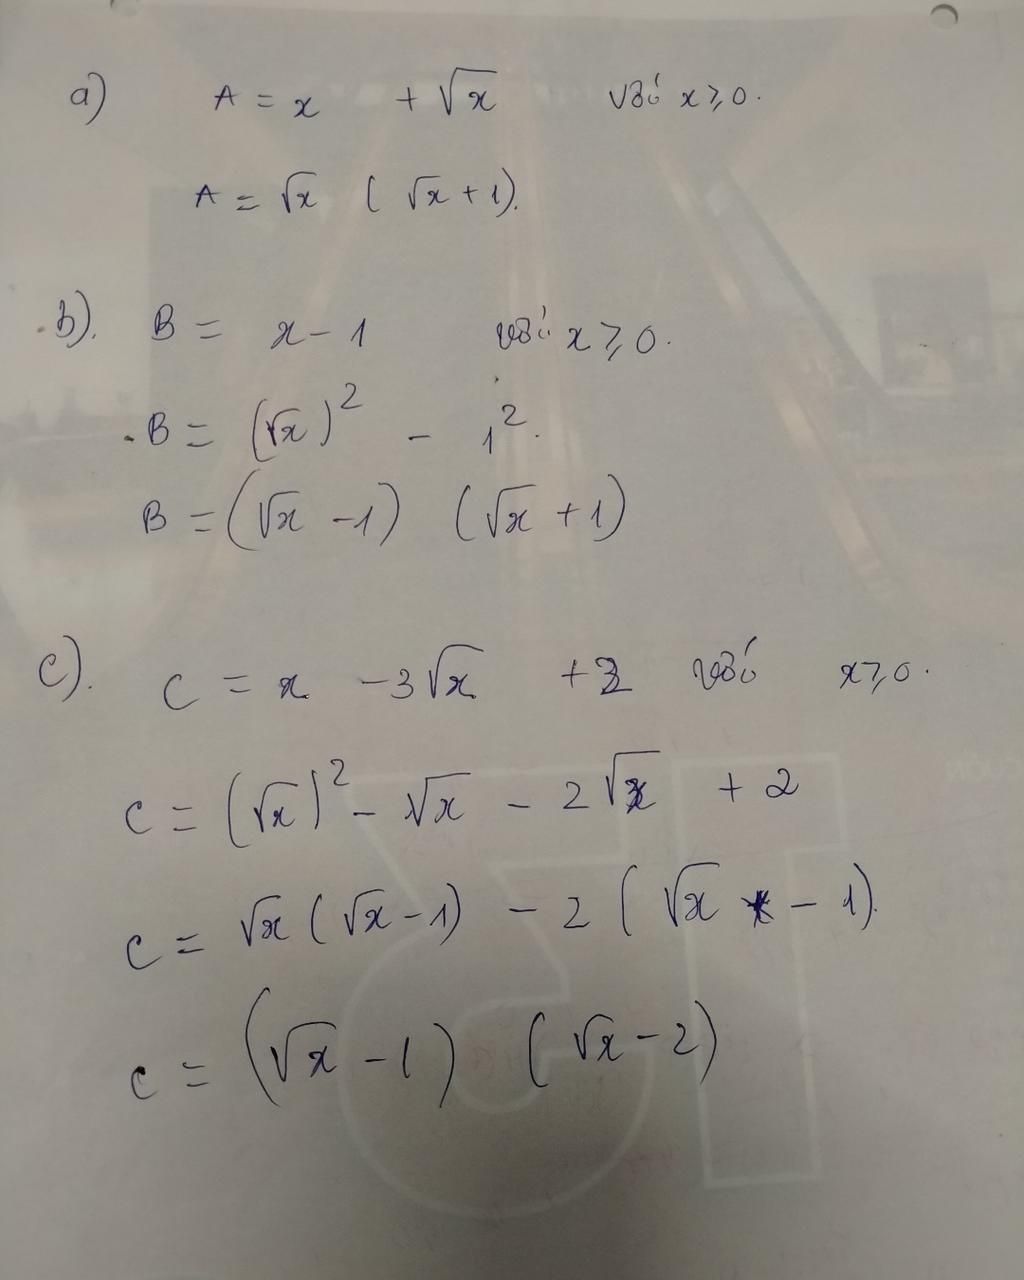 a) A = x + √x với x ≥ 0.
A = √x ( √x + 1).
b). B = x - 1 với x ≥ 0.
B = (√x)² - 1².
B = (√x - 1) (√x + 1)
c). C = x - 3√x + 2 với x ≥ 0.
C = (√x)² - √x - 2√x + 2
C = √x (√x - 1) - 2 ( √x - 1).
C = (√x - 1) ( √x - 2)